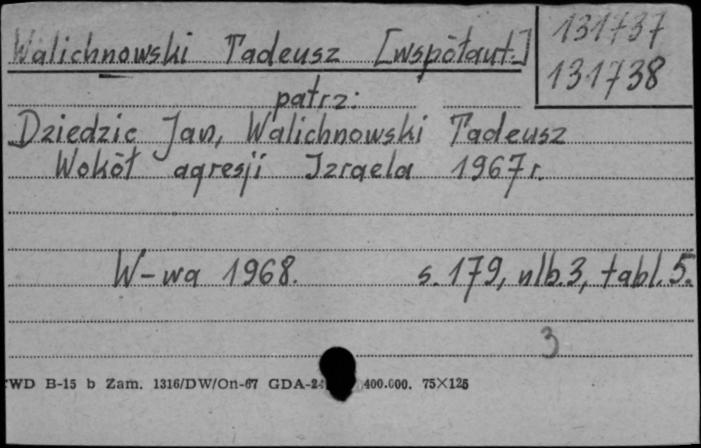 Walichnowski Tadeusz [współaut.]
131737
131738
patrz:
Dziedzic Jan, Walichnowski Tadeusz
Wokół agresji Izraela 1967 r.
W-wa 1968. s. 179, nlb. 3, tabl. 5.
3
WD B-15 b Zam. 1316/DW/On-67 GDA-24 400.000. 75×125